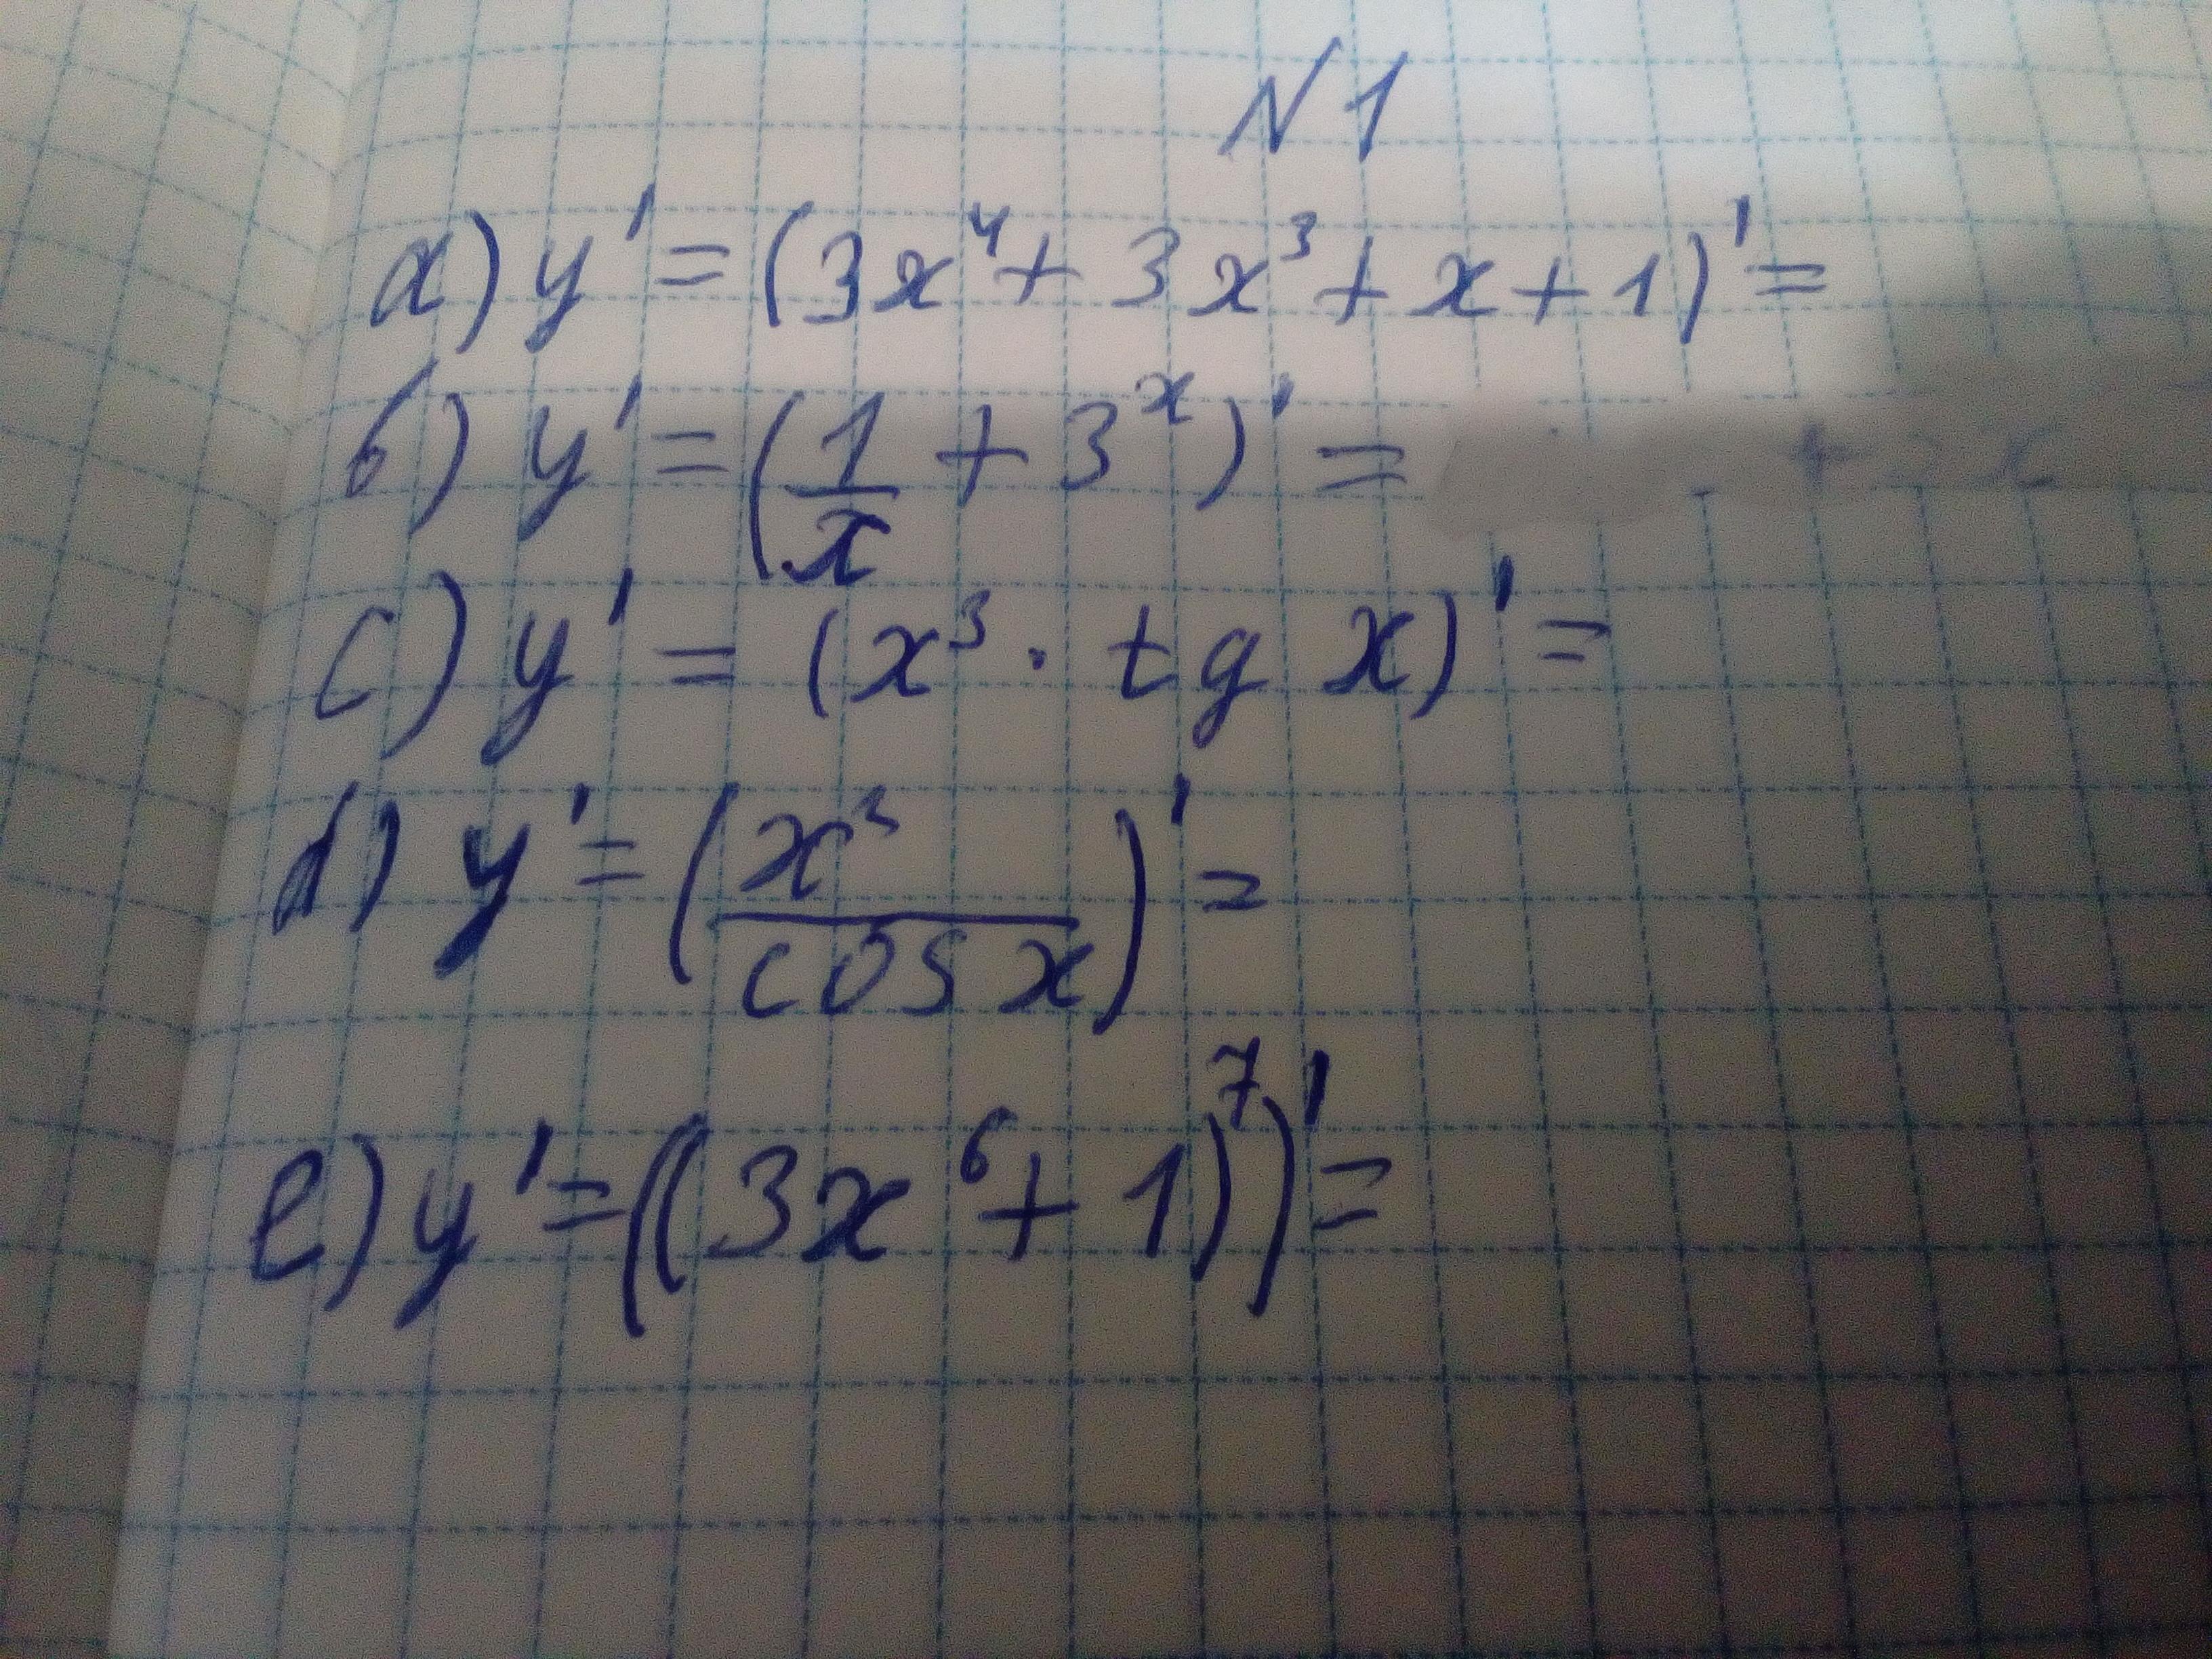 N1
a) y' = (3x⁴ + 3x³ + x + 1)' =
b) y' = (1/x + 3ˣ)' =
c) y' = (x³ · tg x)' =
d) y' = (x³/cos x)' =
e) y' = ((3x⁶ + 1)⁷)' =